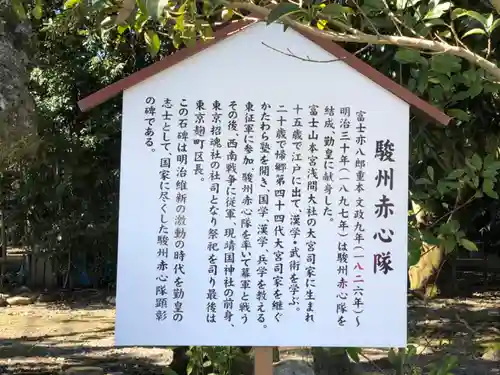 駿州赤心隊
富士亦八郎重本 文政九年(一八二六年)~
明治三十年(一八九七年)は駿州赤心隊を
結成、勤皇に献身した。
富士山本宮浅間大社の大宮司家に生まれ
十五歳で江戸に出て、漢学・武術を学ぶ。
二十歳で帰郷第四十四代大宮司家を継ぐ
かたわら塾を開き、国学、漢学、兵学を教える。
東征軍に参加、駿州赤心隊を率いて幕軍と戦う
その後、西南戦争に従軍、現靖国神社の前身、
東京招魂社の社司となり祭祀を司り最後は
東京麹町区長。
この石碑は明治維新の激動の時代を勤皇の
志士として、国家に尽くした駿州赤心隊顕彰
の碑である。